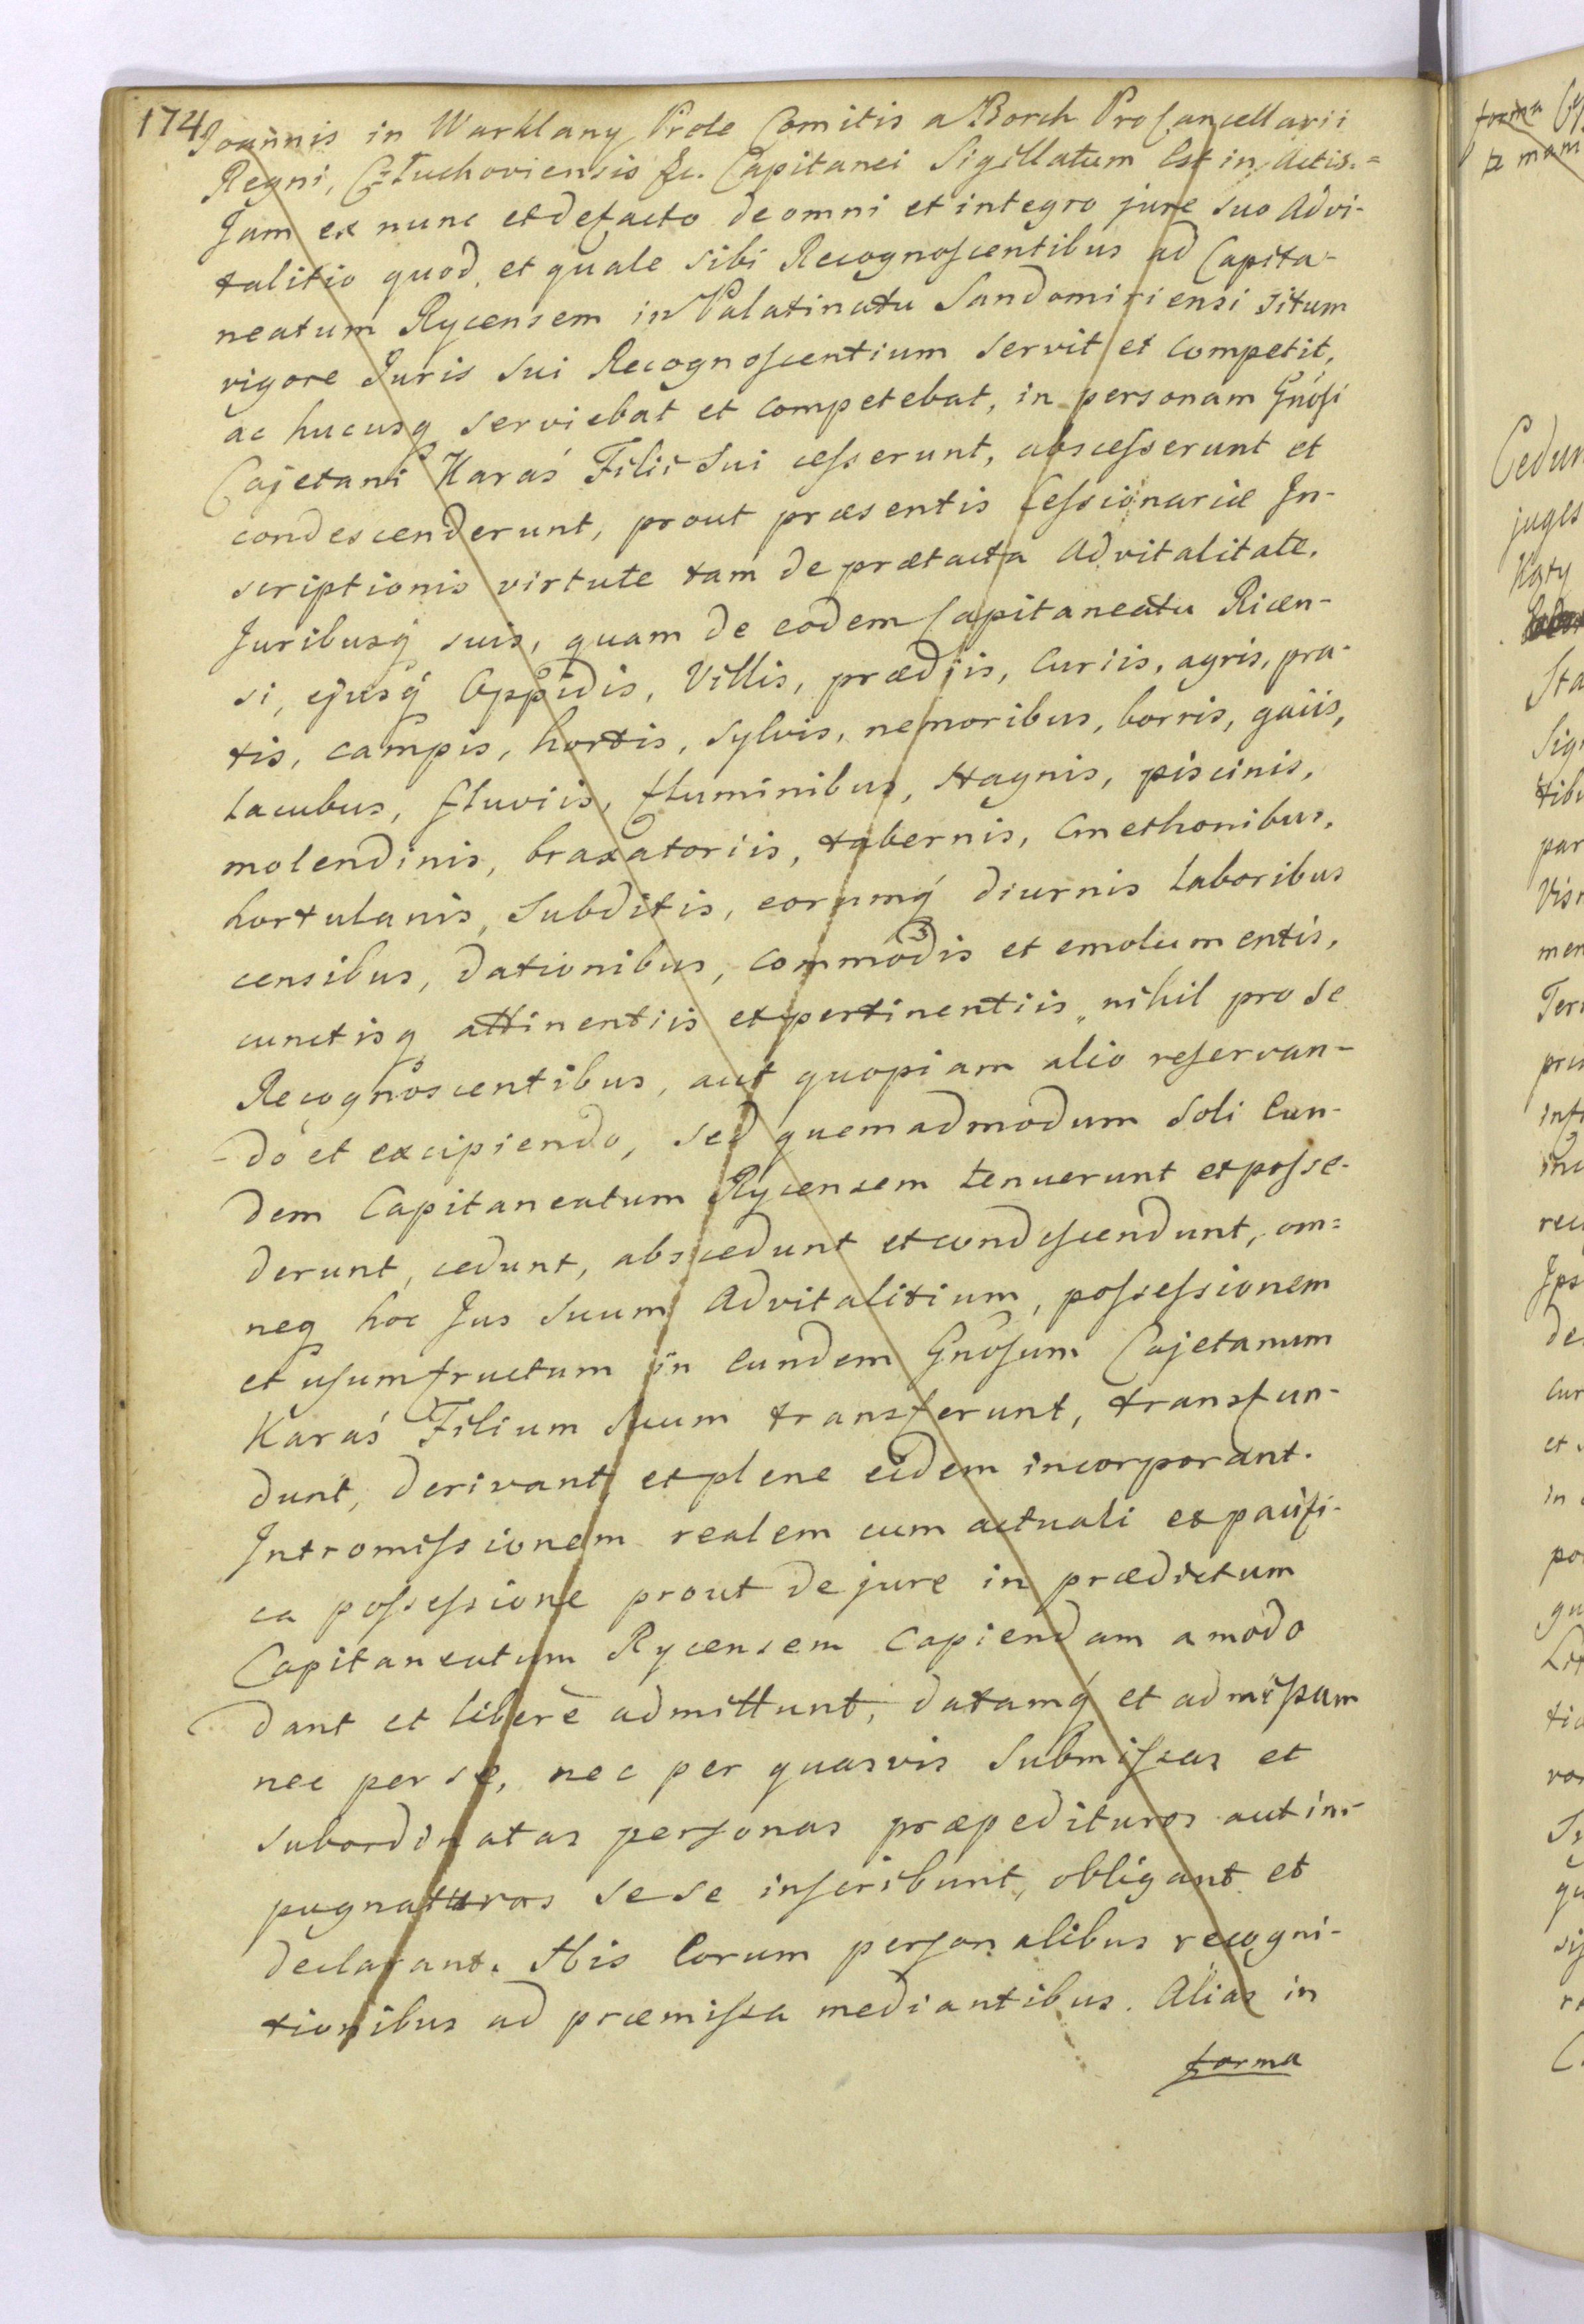 174
Joannis in Warklany Prole Comitis a Borch ProCancellarii
Regni, Człuchoviensis &c. Capitanei Sigillatum Est in Actis.=
Jam ex nunc et de facto de omni et integro jure suo Advi-
talitio quod, et quale sibi Recognoscentibus ad Capita-
neatum Rycensem in Palatinatu Sandomiriensi situm
vigore Juris sui Recognoscentium servit et competit,
ac hucusq serviebat et competebat, in personam Gnosi
Cajetani Karaś Filii Sui cesserunt, abscesserunt et
condescenderunt, prout præsentis Cessionariæ In-
scriptionis virtute tam de prætacta Advitalitate,
Juribusq suis, quam de eodem Capitaneatu Ricen-
si, ejusq Oppidis, Villis, prædjis, Curiis, agris, pra-
tis, campis, hortis, sylvis, nemoribus, borris, gaiis,
Lacubus, fluviis, fluminibus, stagnis, piscinis,
molendinis, braxatoriis, tabernis, Cmethonibus,
hortulanis, Subditis, eorumq diurnis Laboribus
censibus, dationibus, commodis et emolumentis,
cunctisq attinentiis et pertinentiis, nihil pro se
Recognoscentibus, aut quopiam alio reservan-
-do et excipiendo, sed quemadmodum soli Eun-
dem Capitaneatum Rycensem tenuerunt et posse-
derunt, cedunt, abscedunt et condescendunt, om=
neq hoc Jus suum Advitalitium, possessionem
et usumfructum in Eundem Gnosum Cajetanum
Karaś Filium Suum transferunt, transfun-
dunt, derivant et plene eidem incorporant.
Intromissionem realem cum actuali et pacifi-
ca possessione prout de jure in prædictum
Capitaneatum Rycensem Capiendam amodo
dant et liberè admittunt, datamq et admissam
nec per se, nec per quasvis Submissas et
subordinatas personas præpedituros aut im-
pugnaturos sese inscribunt, obligant et
declarant. His Eorum personalibus recogni-
tionibus ad præmissa mediantibus. Alias in
forma
forma
Cedun
juges
Sta
Sig
tib
par
Vis
men
Ter
pos
Ips
de
cur
et
in
po